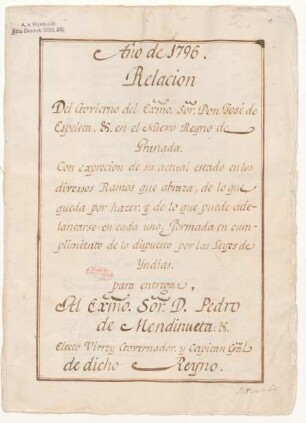 Año de 1796.
Relacion
Del Govierno del Exmõ. Sor. Don José de
Espeleta, &. en el Nuevo Reyno de
Granada.
Con exprecion de su actual estado en los
diversos Ramos que abraza, de lo que
queda por hazer, y de lo que puede ade-
lantarse en cada uno, formada en cum-
plimiento de lo dispuesto por las Leyes de
Yndias.
para entregar,
Al Exmõ. Sor. D. Pedro
de Mendinueta. &.
Electo Virrey Governador, y Capitan Gral
de dicho Reyno.